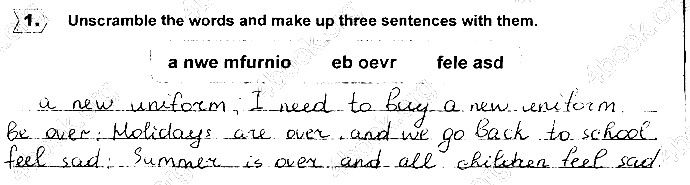 1. Unscramble the words and make up three sentences with them.
a nwe mfurnio eb oevr fele asd
a new uniform; I need to buy a new uniform.
Be over: Holidays are over and we go back to school
feel sad: Summer is over and all children feel sad.